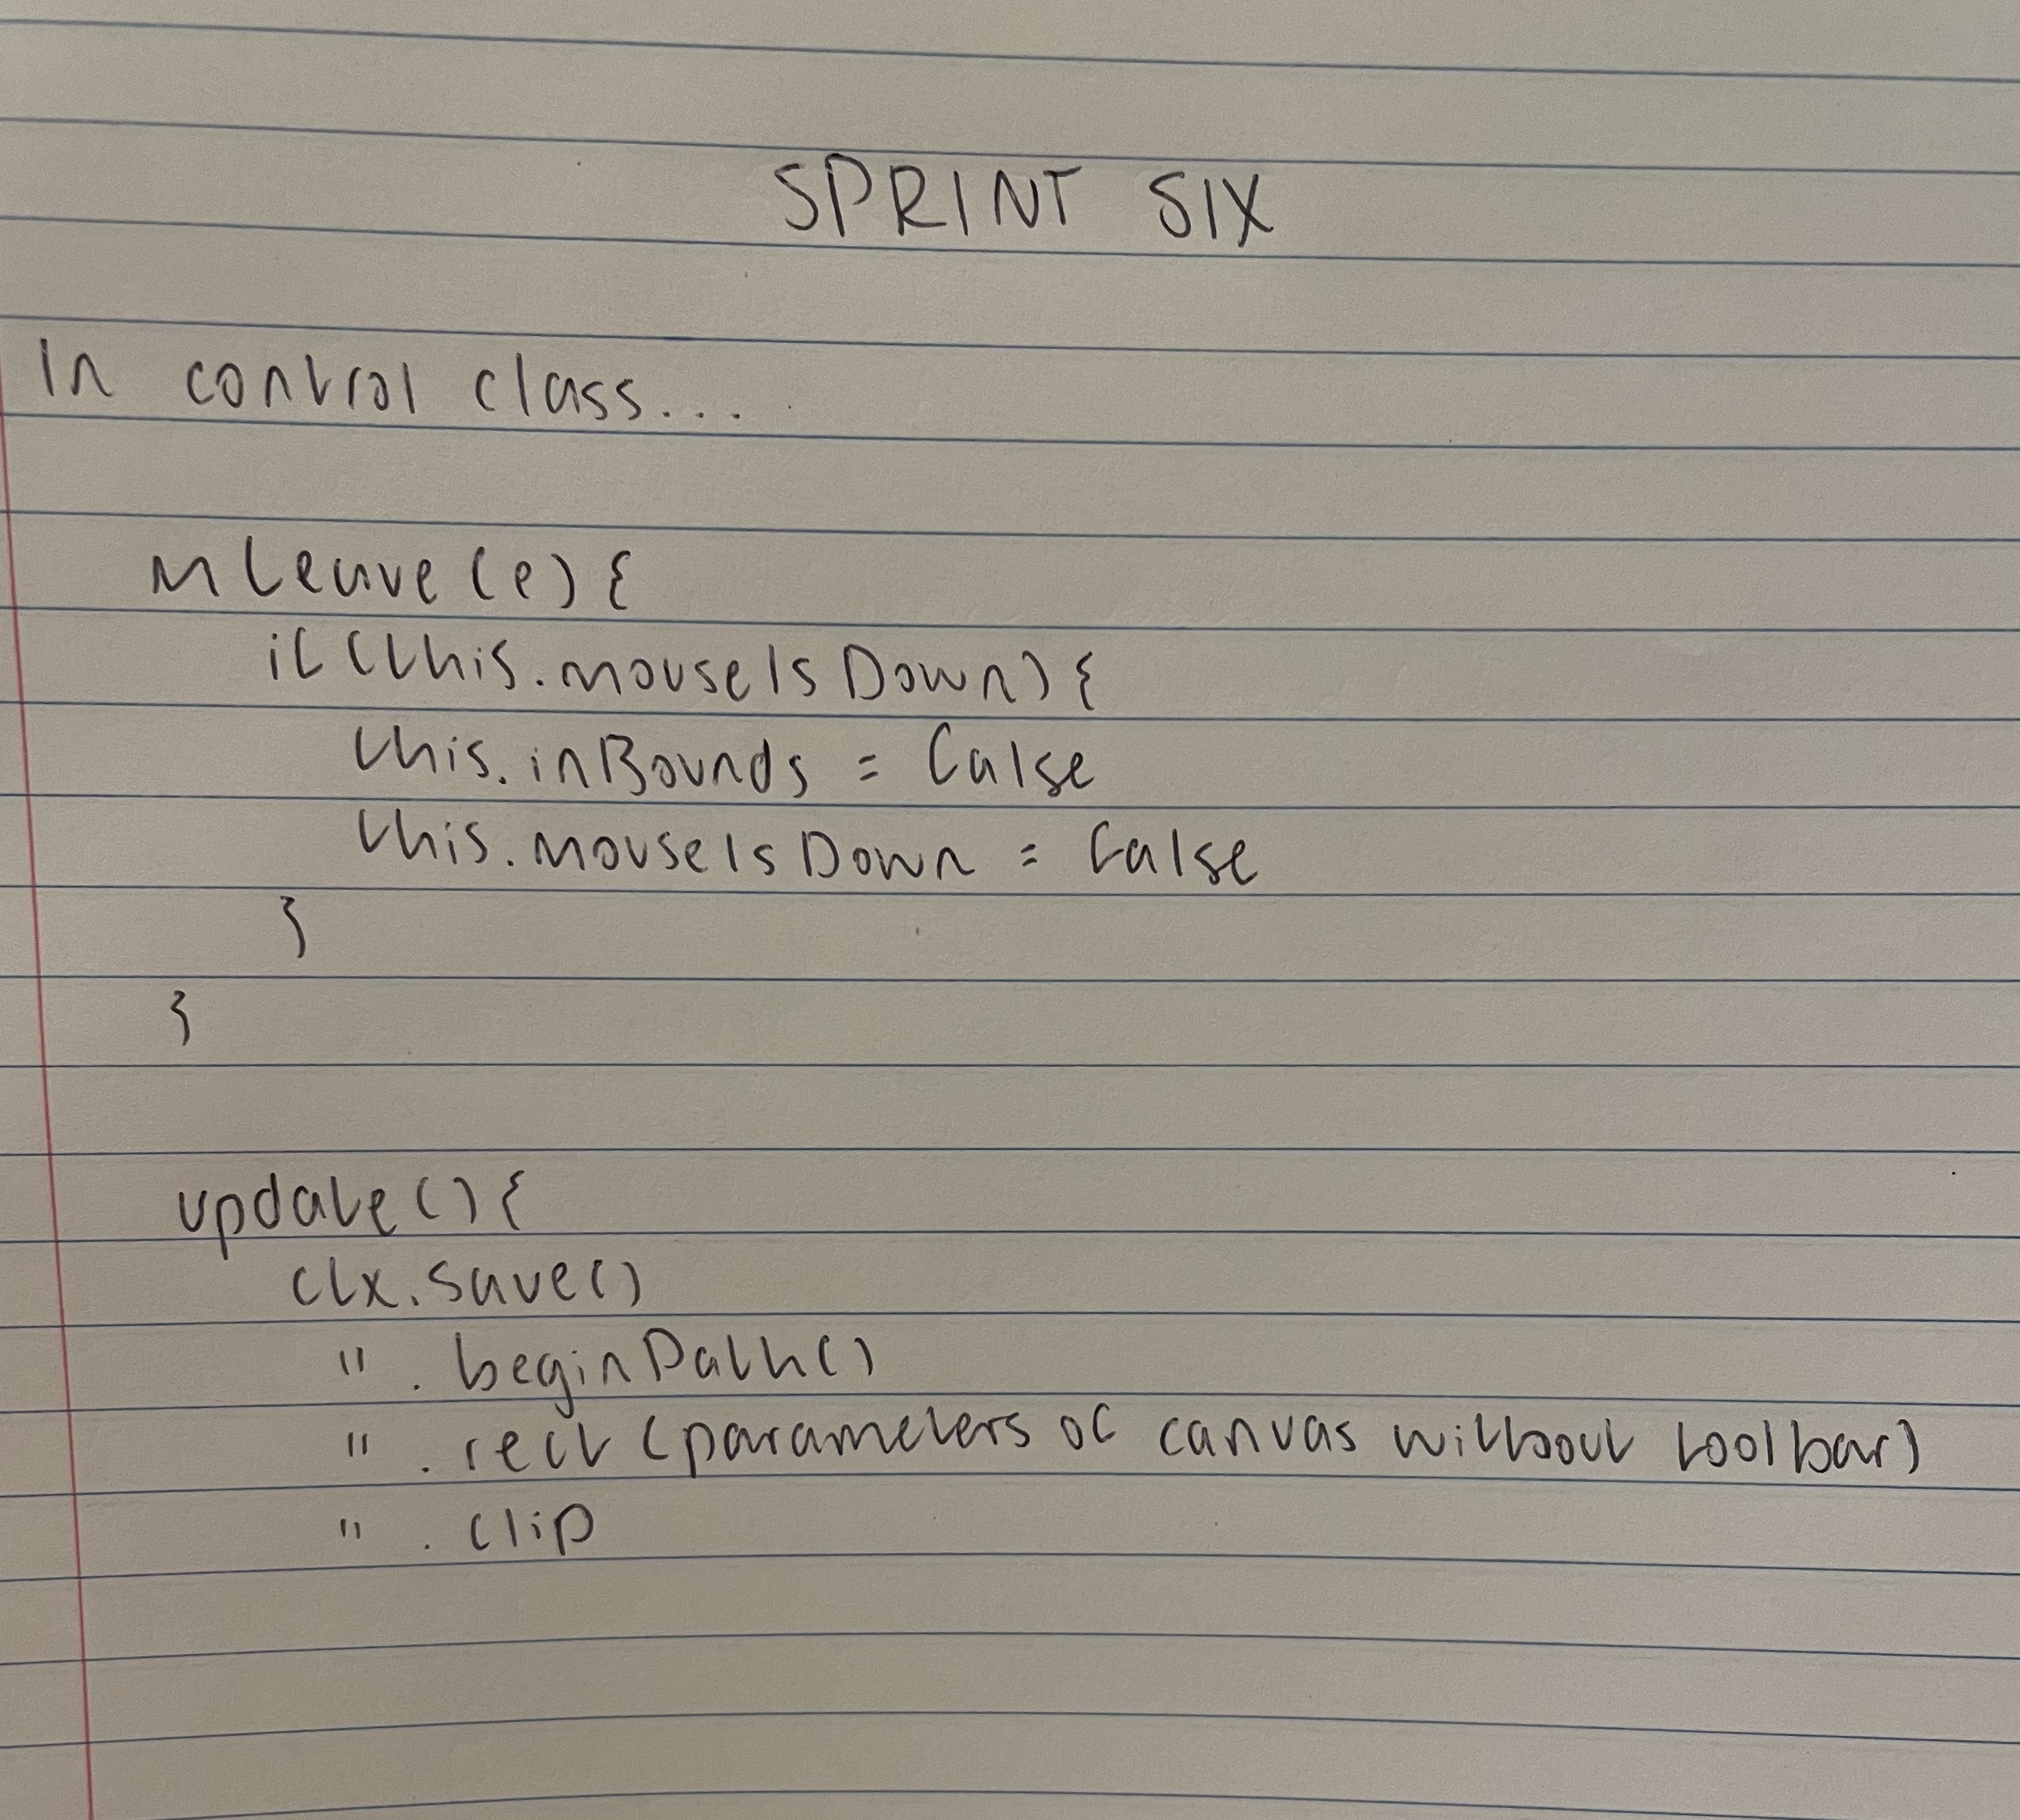 SPRINT SIX
In control class...
mLeave(e){
if(this.mouseIsDown){
this.inBounds = false
this.mouseIsDown = false
}
}
update(){
ctx.save()
" . beginPath()
" . rect (parameters of canvas without toolbar)
" . clip